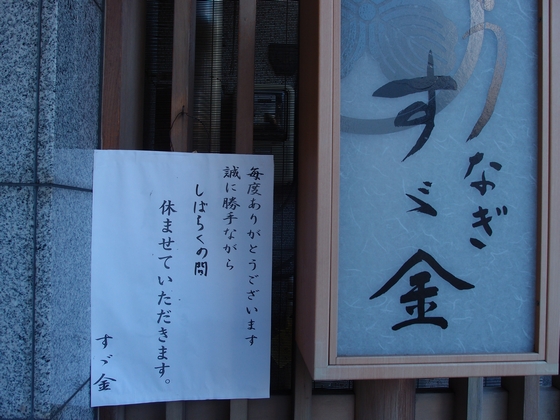 うなぎ
すゞ金
毎度ありがとうございます
誠に勝手ながら
しばらくの間
休ませていただきます。
すゞ金